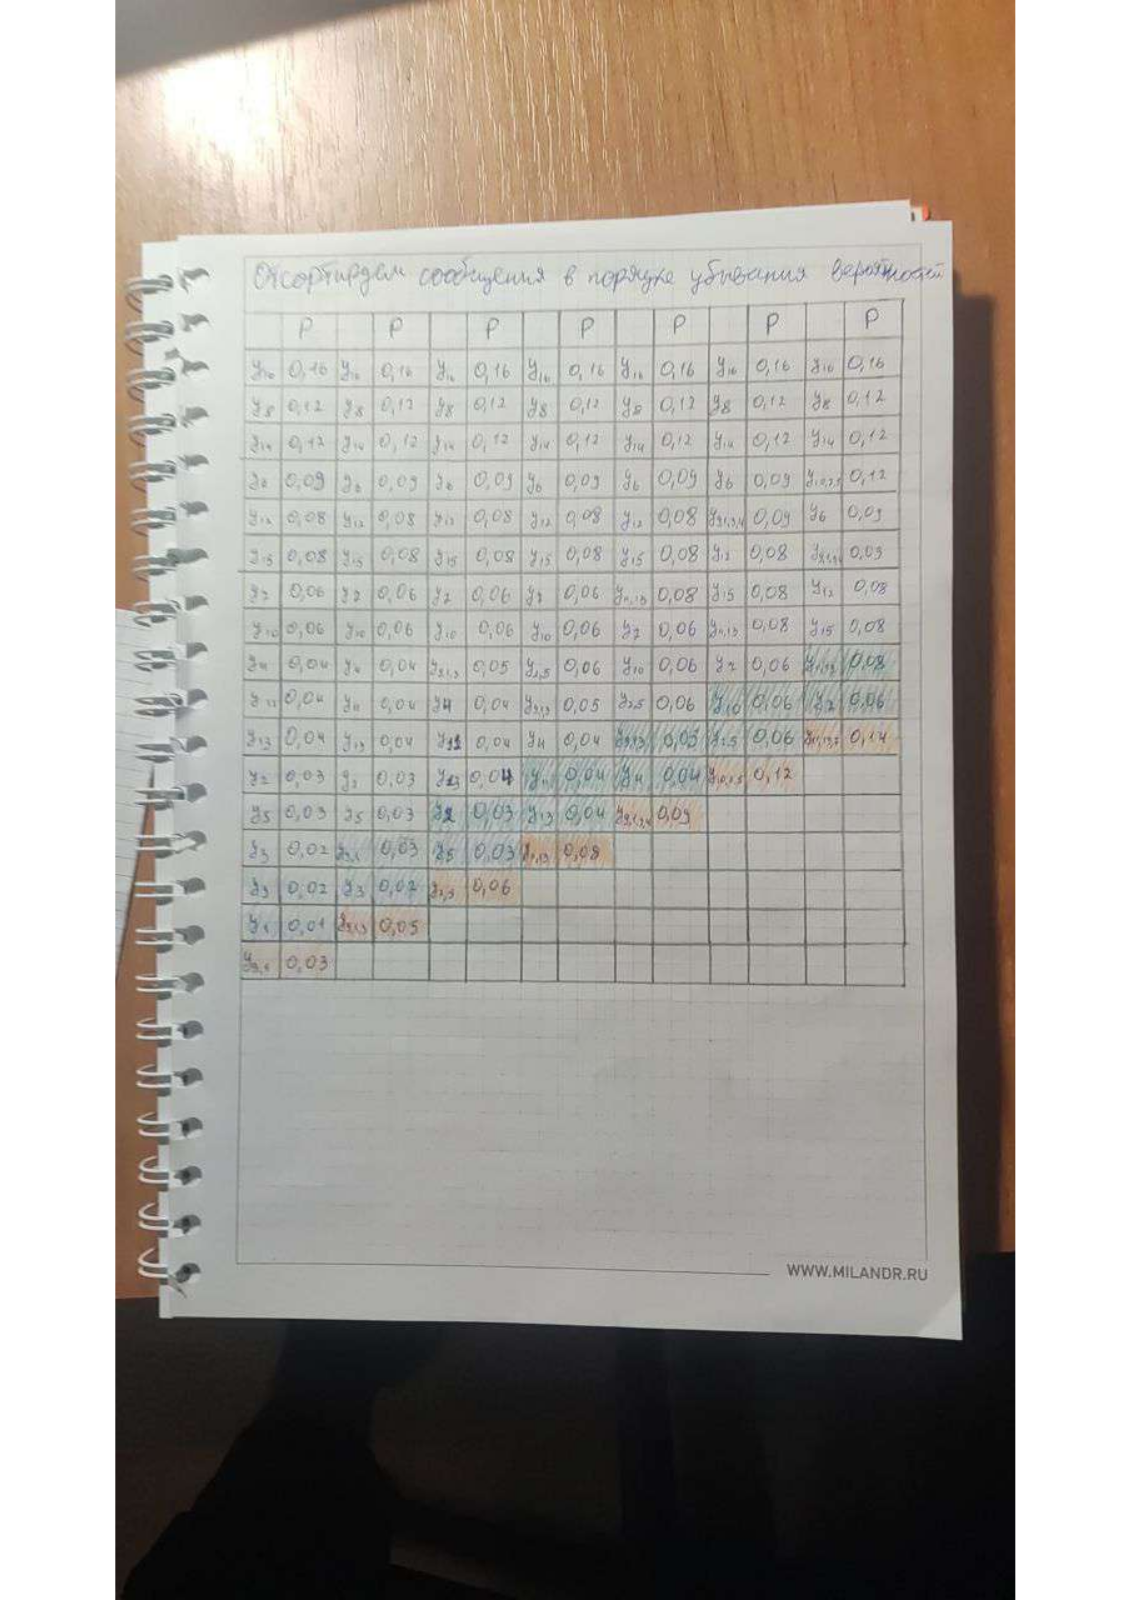 Отсортируем сообщения в порядке убывания вероятностей
P P P P P P P
y16 0,16 y16 0,16 y16 0,16 y16 0,16 y16 0,16 y16 0,16 y16 0,16
y8 0,12 y8 0,12 y8 0,12 y8 0,12 y8 0,12 y8 0,12 y8 0,12
y14 0,12 y14 0,12 y14 0,12 y14 0,12 y14 0,12 y14 0,12 y14 0,12
y6 0,09 y6 0,09 y6 0,09 y6 0,09 y6 0,09 y6 0,09 y10,2,5 0,12
y12 0,08 y12 0,08 y12 0,08 y12 0,08 y12 0,08 y9,1,3,4 0,09 y6 0,09
y15 0,08 y15 0,08 y15 0,08 y15 0,08 y15 0,08 y12 0,08 y9,1,3,4 0,09
y7 0,06 y7 0,06 y7 0,06 y7 0,06 y11,13 0,08 y15 0,08 y12 0,08
y10 0,06 y10 0,06 y10 0,06 y10 0,06 y7 0,06 y11,13 0,08 y15 0,08
y4 0,04 y4 0,04 y9,1,3 0,05 y2,5 0,06 y10 0,06 y7 0,06 y11,13 0,08
y11 0,04 y11 0,04 y4 0,04 y9,1,3 0,05 y2,5 0,06 y10 0,06 y7 0,06
y13 0,04 y13 0,04 y11 0,04 y4 0,04 y9,1,3 0,05 y2,5 0,06 y11,13,7 0,14
y2 0,03 y2 0,03 y13 0,04 y11 0,04 y4 0,04 y10,2,5 0,12
y5 0,03 y5 0,03 y2 0,03 y13 0,04 y9,1,3,4 0,09
y3 0,02 y9,1 0,03 y5 0,03 y11,13 0,08
y9 0,02 y3 0,02 y2,5 0,06
y1 0,01 y9,1,3 0,05
y9,1 0,03
WWW.MILANDR.RU